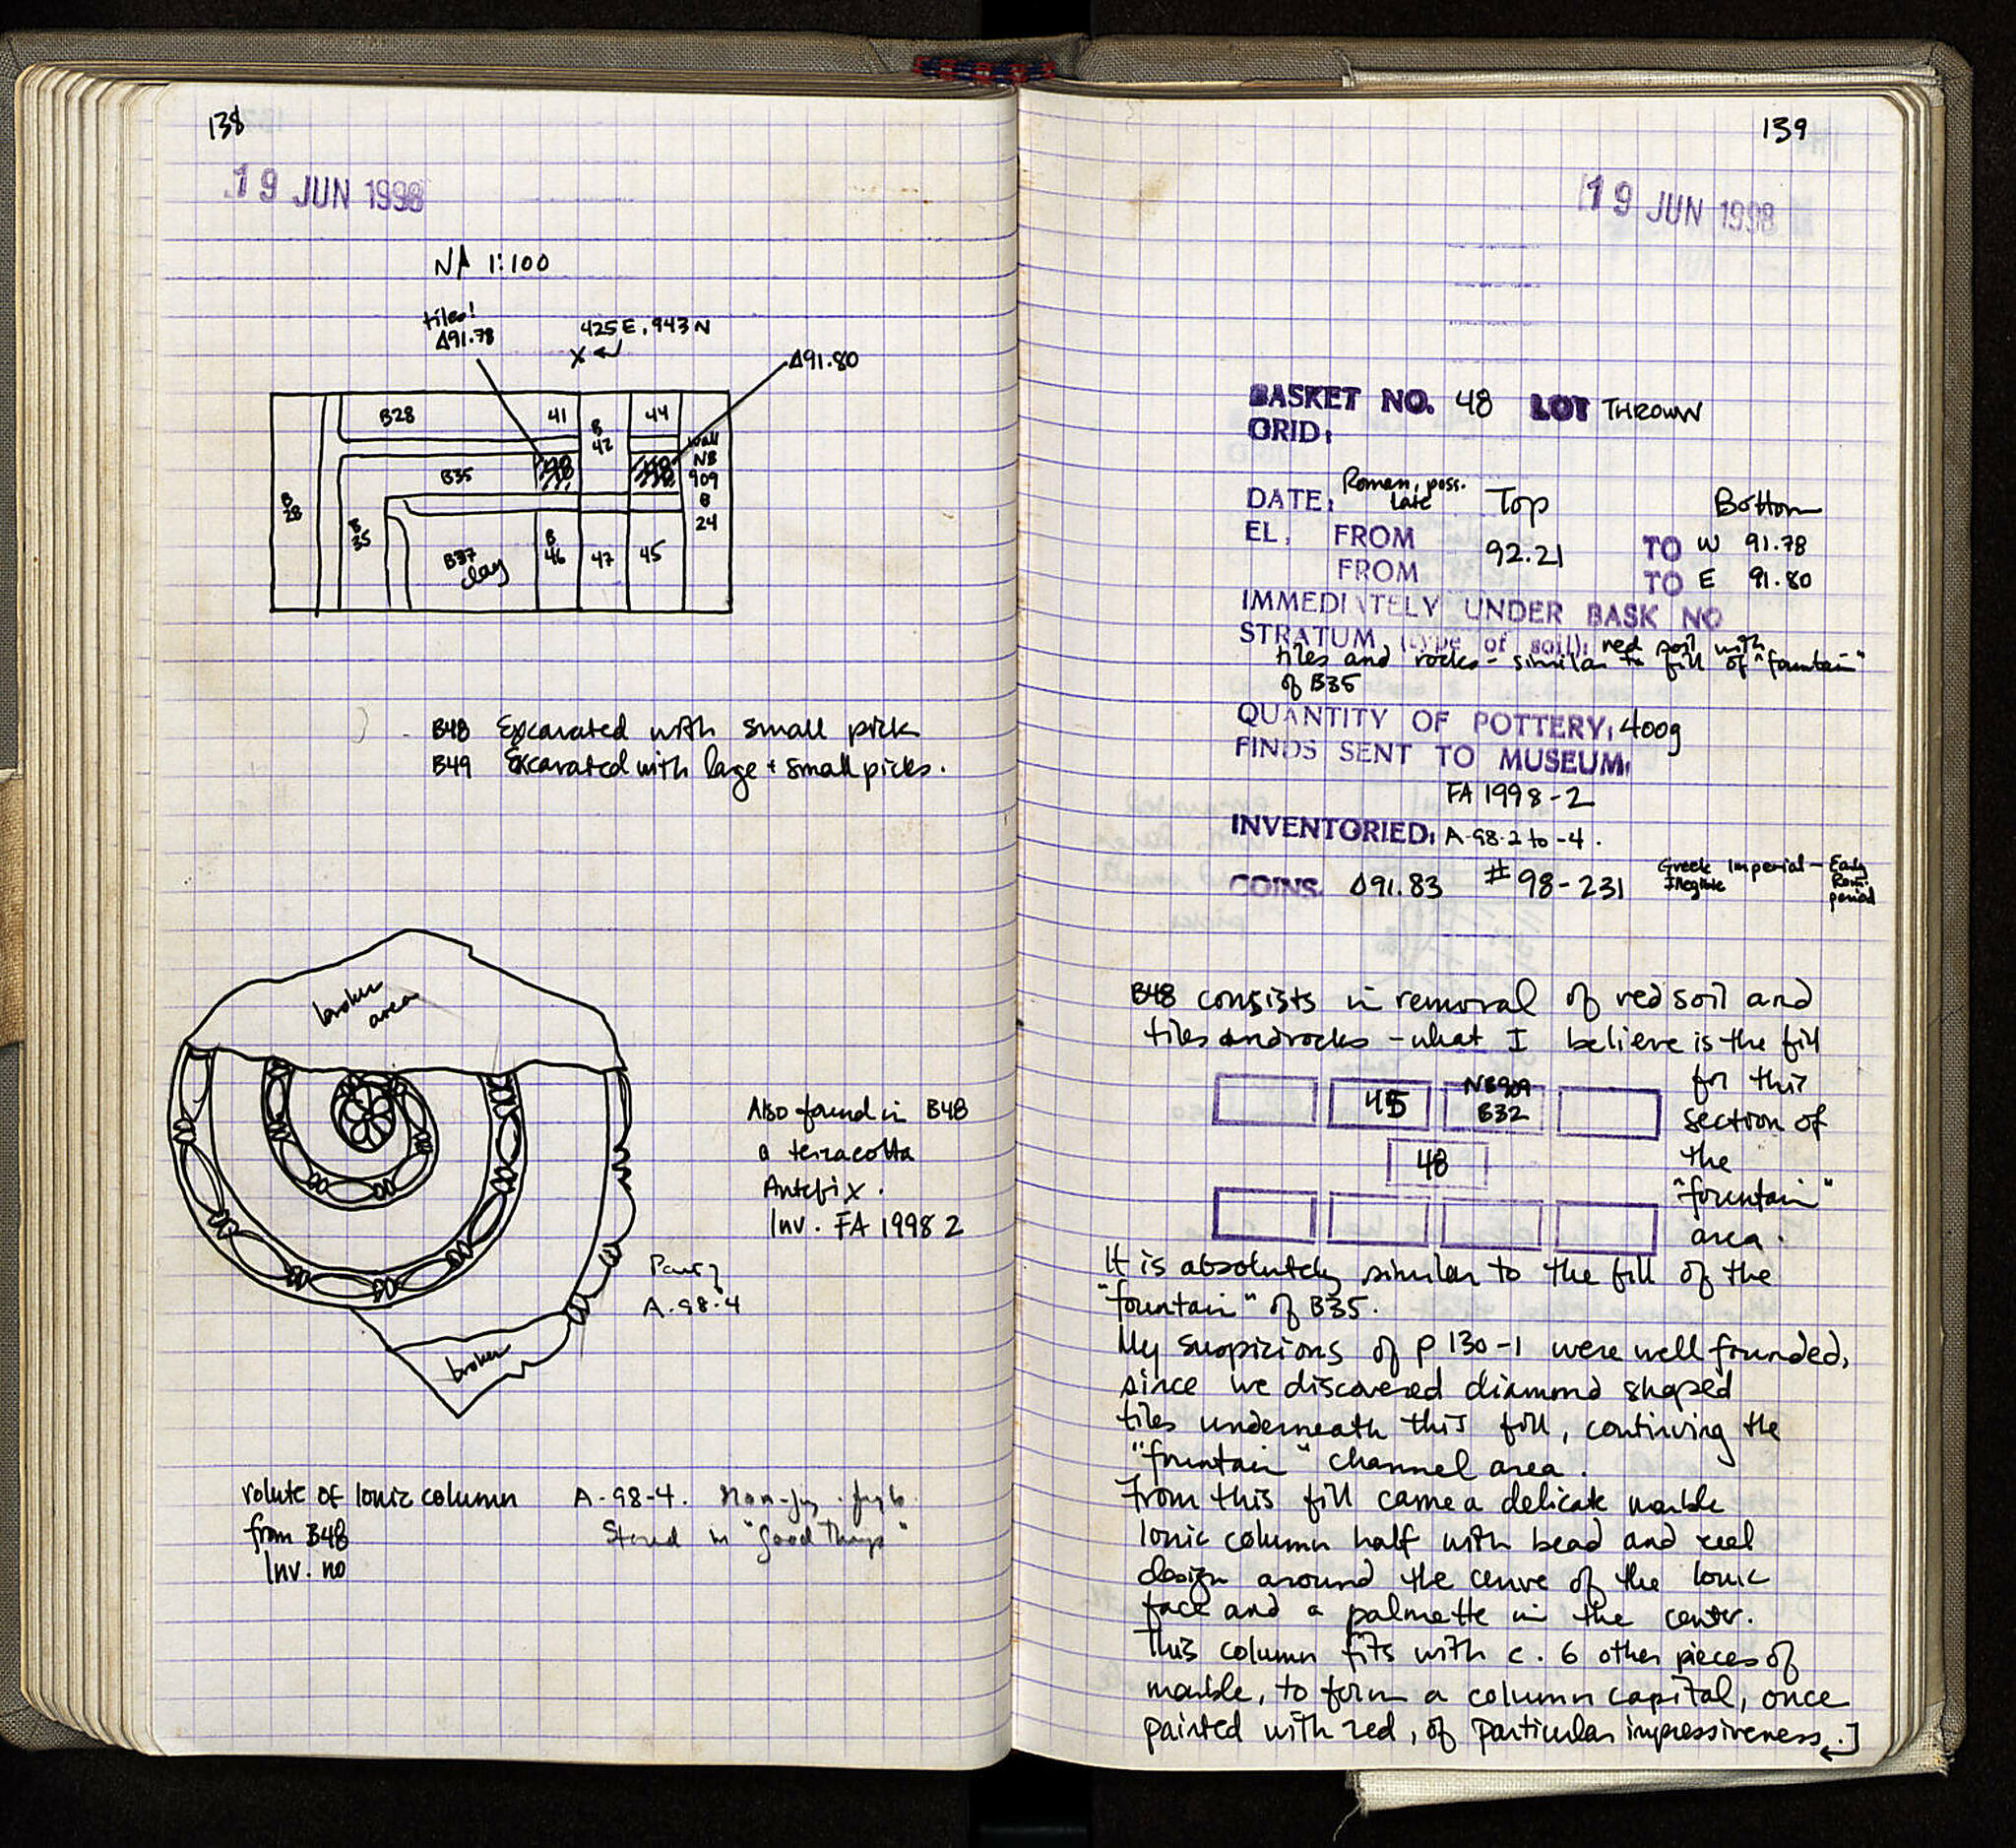 138
19 JUN 1998
N 1:100
tiles!
Δ91.78
425E, 943N
X
Δ91.80
B28
41
B
42
44
wall
NB
909
B
24
B
28
B35
48
48
B
35
B37
clay
B
46
47
45
B48 Excavated with small pick
B49 Excavated with large + small picks.
broken
area
Also found in B48
a terracotta
Antefix.
Inv. FA 1998 2
Part of
A-98-4
broken
volute of Ionic column
from B48
Inv. no
A-98-4. Non-jng. frgts.
Stored in "good things"
139
19 JUN 1998
BASKET NO. 48 LOT THROWN
GRID:
DATE: Roman, poss.
late
Top Bottom
EL. FROM 92.21 TO W 91.78
FROM TO E 91.80
IMMEDIATELY UNDER BASK NO
STRATUM (type of soil): red soil with
tiles and rocks - similar to fill of "fountain"
of B35
QUANTITY OF POTTERY: 400g
FINDS SENT TO MUSEUM:
FA 1998-2
INVENTORIED: A-98-2 to -4.
COINS. Δ91.83 #98-231 Greek Imperial - Early
Illegible Rom.
period
B48 consists in removal of red soil and
tiles and rocks - what I believe is the fill
for this
section of
the
"fountain"
area.
45
NB909
B32
48
It is absolutely similar to the fill of the
"fountain" of B35.
My suspicions of p 130-1 were well founded,
since we discovered diamond shaped
tiles underneath this fill, continuing the
"fountain" channel area.
From this fill came a delicate marble
Ionic column half with bead and reel
design around the curve of the Ionic
face and a palmette in the center.
This column fits with c. 6 other pieces of
marble, to form a column capital, once
painted with red, of particular impressiveness.]